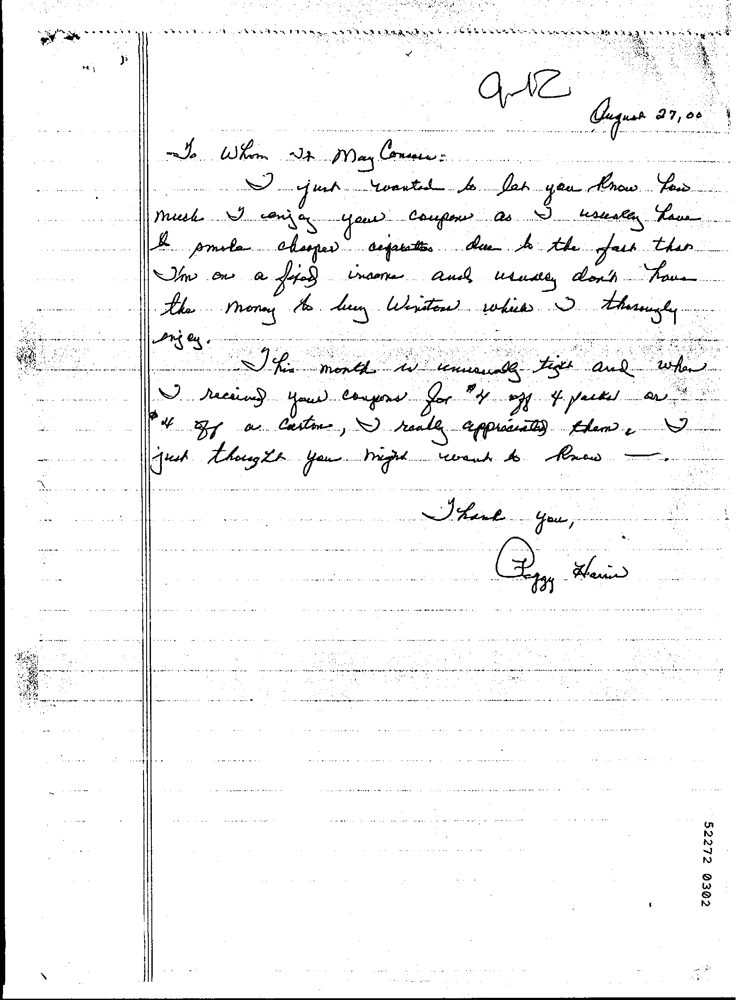 9-12
August 27, 00
To Whom It May Concern:
I just wanted to let you know how
much I enjoy your coupons as I usually have
to smoke cheaper cigarettes due to the fact that
I'm on a fixed income and usually don't have
the money to buy Winston which I thoroughly
enjoy.
This month is unusually tight and when
I received your coupons for $4 off 4 packs or
$4 off a carton, I really appreciated them. I
just thought you might want to know —.
Thank you,
Peggy Harris
52272 0302